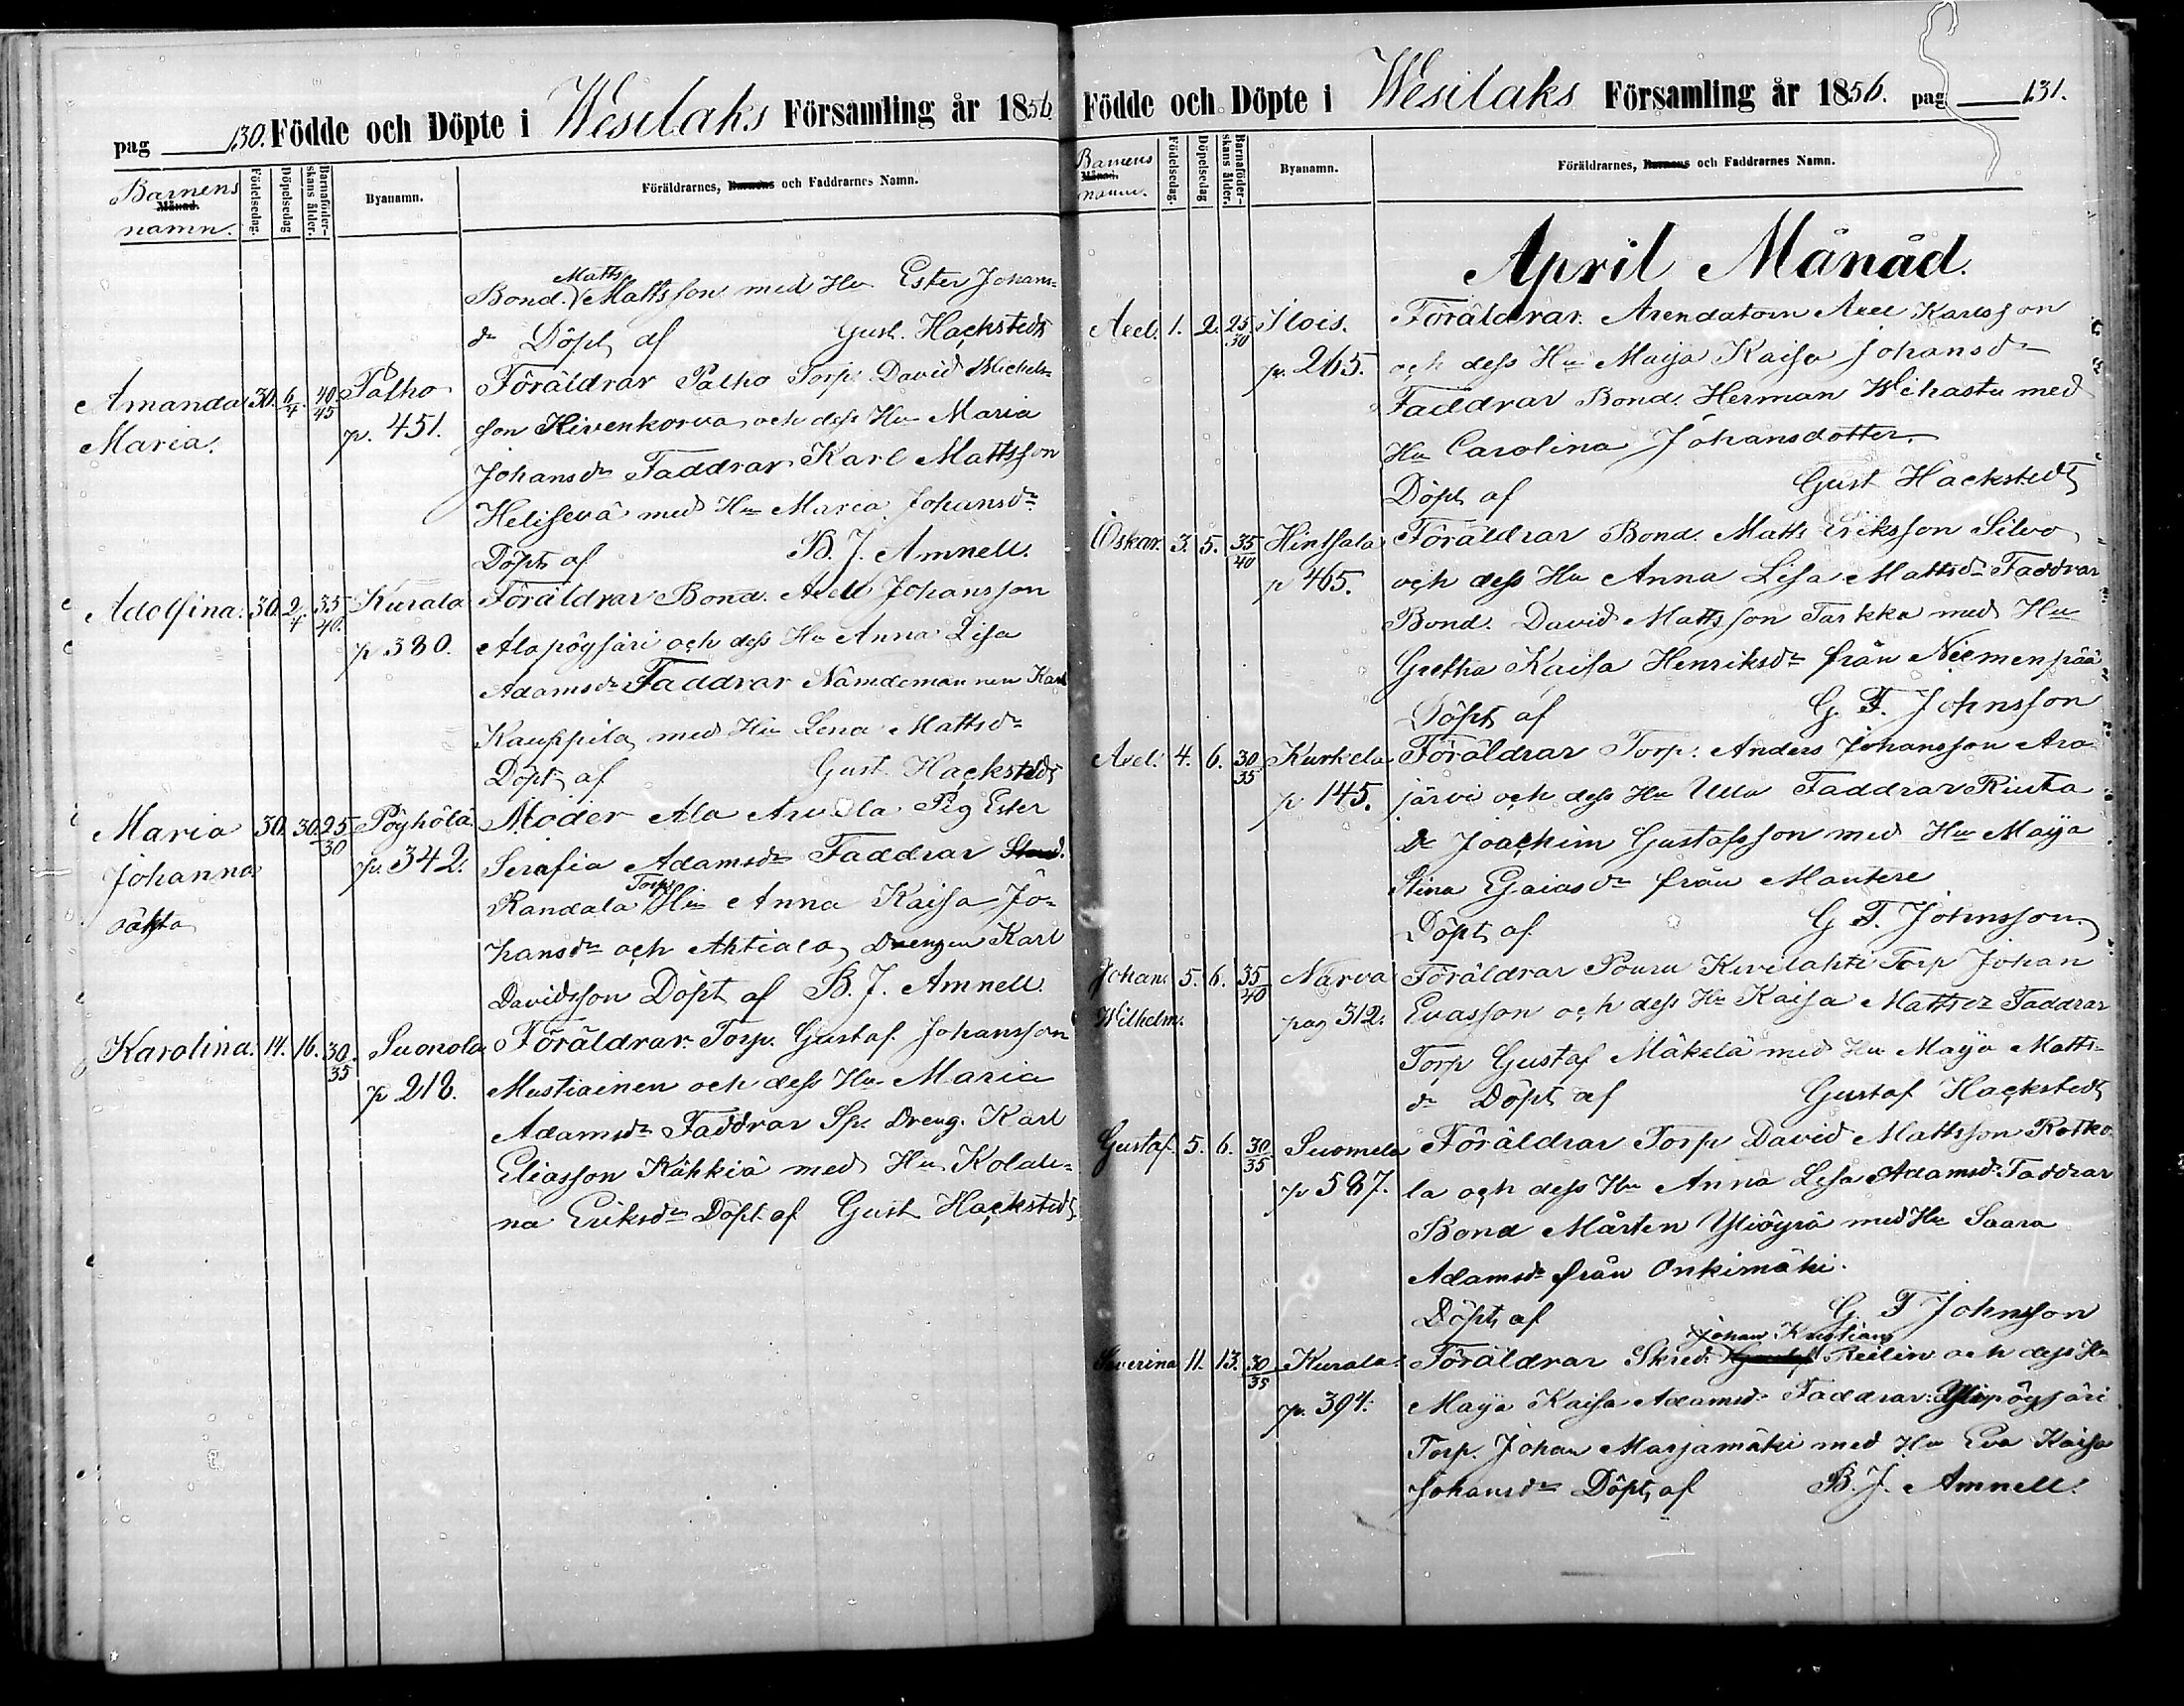 pag 130. Födde och Döpte i Wesilaks Församling år 1856
Barnens
Månad.
namn.
Födelsedag.
Döpelsedag
Barnaföderskans ålder.
Byanamn.
Föräldrarnes, Barnens och Faddrarnes Namn.
Matts
Bond. Mattsson med Hu Ester Johans=
dr Döpt af Gust. Hackstedt
Amanda 30. 6/4. 40/45 Palho Föräldrar Palho Torp. David Michels=
Maria. p. 451. son Hivenkorva och dess Hu Maria
Johansdr Faddrar Karl Mattsson
Helisevä med Hu Maria Johansdr
Döpt af B. J. Amnell.
Adolfina. 30. 2/4 35/40. Kurala Föräldrar Bond. Axel Johansson
p. 380. Alapöysäri och dess Hu Anna Lisa
Adamsdr Faddrar Nämdemannen Karl
Kauppila med Hu Lena Mattsdr
Döpt af Gust. Hackstedt
Maria 30. 30. 25/30 Pöyhölä Moder Ala Arvela Pig Ester
Johanna p. 342. Serafia Adamsdr Faddrar
oäkta Randala Torp. Hu Anna Kaisa Jo=
hansdr och Ahtiala Drengen Karl
Davidsson Döpt af B. J. Amnell.
Karolina. 14. 16. 30/35 Suonola Föräldrar Torp. Gustaf Johansson
p. 218. Mustiainen och dess Hu Maria
Adamsdr Faddrar Sp. Dreng. Karl
Eliasson Kähkiä med Hu Kolali=
na Eriksdr Döpt af Gust Hackstedt
Födde och Döpte i Wesilaks Församling år 1856. pag 131.
Barnens
Månad.
namn.
Födelsedag.
Döpelsedag
Barnaföderskans ålder.
Byanamn.
Föräldrarnes, Barnens och Faddrarnes Namn.
April Månad.
Axel. 1. 2. 25/30 Ilois. Föräldrar. Arendatorn Axel Karlsson
p. 265. och dess Hu Maija Kaisa Johansdr
Faddrar Bond. Herman Wihastu med
Hu Carolina Johansdotter.
Döpt af Gust Hackstedt
Oskar. 3. 5. 35/40 Hintsala Föräldrar Bond. Matts Eriksson Silvo
p 465. och dess Hu Anna Lisa Mattsdr Faddrar
Bond. David Mattsson Tarkka med Hu
Gretha Kaisa Henriksdr från Niemenpää
Döpt af G. F. Johnsson
Axel. 4. 6. 30/35 Kurkela Föräldrar Torp. Anders Johansson Ara
p 145. järvi och dess Hu Ulla Faddrar Rinta
Dr Joachim Gustafsson med Hu Maija
Stina Gaiasdr från Mantere
Döpt af G. F. Johnsson.
Johan 5. 6. 35/40 Narva Föräldrar Pouru Kivilahti Torp Johan
Wilhelm. pag 312. Evasson och dess Hu Kaisa Mattsdr Faddrar
Torp Gustaf Mäkelä med Hu Maija Matts=
dr Döpt af Gustaf Hackstedt
Gustaf. 5. 6. 30/35 Suomela Föräldrar Torp David Mattsson Rotko
p 587. la och dess Hu Anna Lisa Adamsdr Faddrar
Bond Mårten Yliöyrä med Hu Saara
Adamsdr från Onkimäki.
Döpt af G. F Johnsson
Johan Kristian
Severina 11. 13. 30/35 Kurala Föräldrar Skred. Gustaf Reilin och dess Hu
p. 394. Maija Kaisa Adamsdr Faddrar: Ylipöysäri
Torp. Johan Marjamäki med Hu Eva Kaisa
Johansdr Döpt af B. J. Amnell.